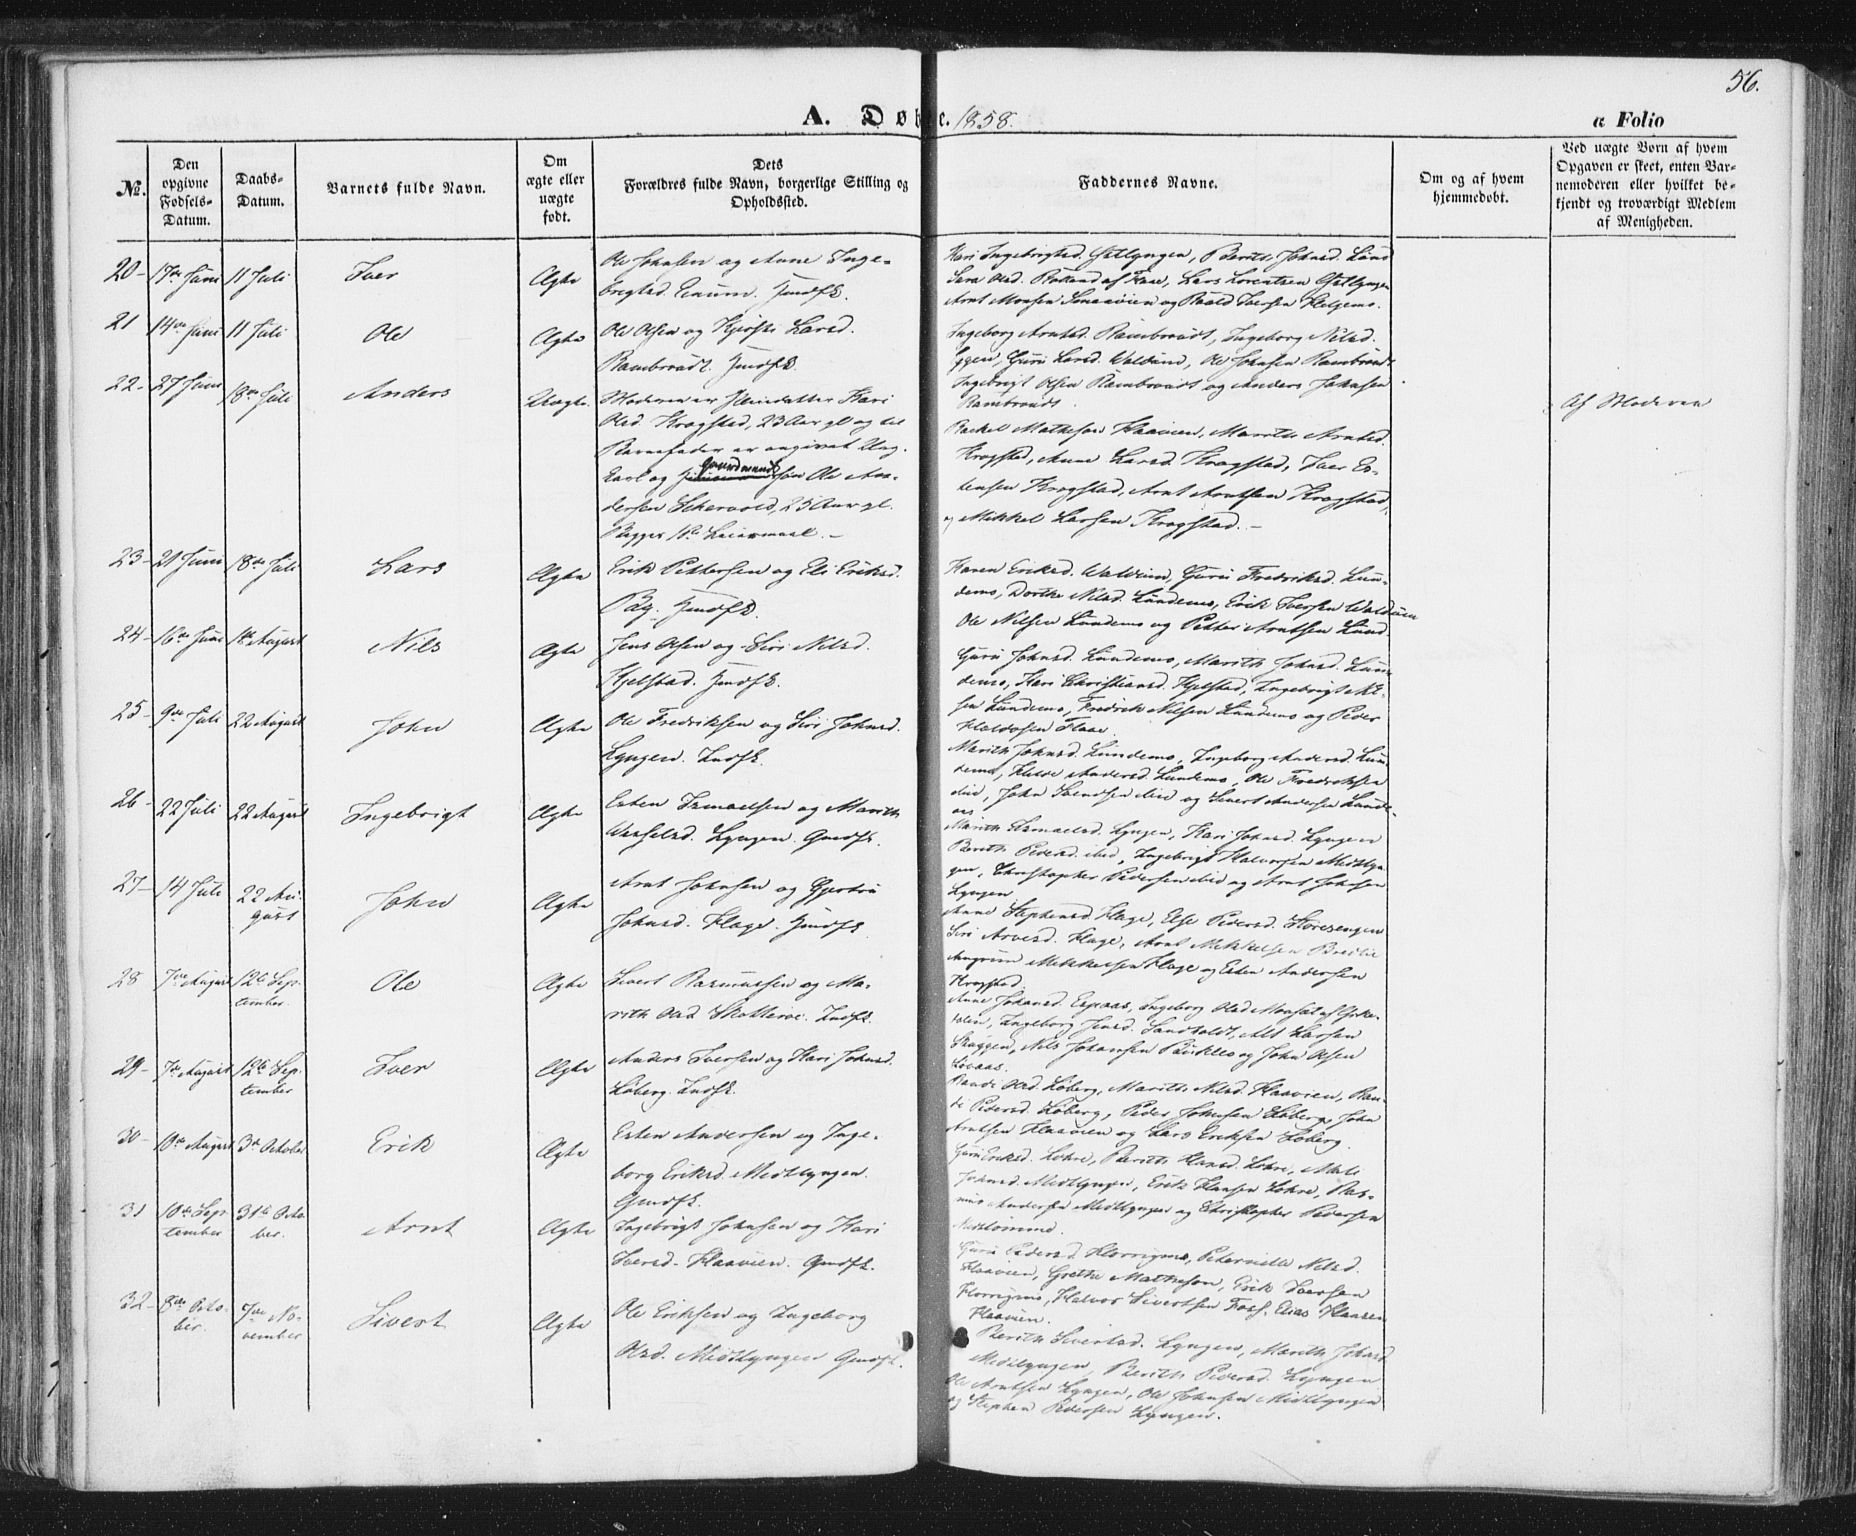 56.
A. Døbte. 1858.
a Folio
No.
Den opgivne Fødsels-Datum.
Daabs-Datum.
Barnets fulde Navn.
Om ægte eller uægte født.
Dets Forældres fulde Navn, borgerlige Stilling og Opholdssted.
Faddernes Navne.
Om og af hvem hjemmedøbt.
Ved uægte Børn af hvem Opgaven er skeet, enten Barnemoderen eller hvilket bekjendt og troværdigt Medlem af Menigheden.
20- 17de Juni 11 Juli Iver Ægte
Ole Johnsen og Anne Inge-
brigtsd. Gmdfk.
Kari Ingebrigtsd. Berith Johnsd. Lund
Sara Olsd. af Flaae, Lars Lorentsen
Arnt Monsen og Iversen
21 14de Juni 11 Juli Ole Ægte
Ole Olsen og Kjersti Larsd.
Rambraadt. Gmdfk.
Ingeborg Arntsd. Rambraadt, Ingeborg Nilsd.
Eggen, Guru Larsd. Waldum, Ole Johnsen Rambraadt
Ingebrigt Olsen Rambraadt og Anders Johnsen
Rambraadt.
22- 27 Juni 18de Juli Anders Uægte.
Moderen er Kari
Olsd. Krogstad, 23 Aar gl og til
Barnefader er angivet Ung-
karl og Gaardmands søn Ole An-
dersen 25 Aar gl.
Begges 1ste Leiermaal.-
Rachel Mathesen Haavien, Marith Arntsd.
Krogstad, Anne Larsd. Krogstad, Iver Es-
tensen Krogstad, Arnt Arntsen Krogstad,
og Mikkel Larsen Krogstad.-
Af Moderen
23- 21 Juni 18de Juli Lars Ægte
Erik Pettersen og Eli Eriksd.
Gmdfk.
Karen Eriksd. Waldum, Guru Fredriksd. Lun-
demo, Dorthe Nilsd. Lundemo, Erik Iversen Waldum
Ole Nilsen Lundemo og Petter Arntsen Lund.
24- 16de Juni 1ste August Nils Ægte
Jens Olsen og Siri Nilsd.
Hjelstad. Gmdfk.
Guru Johnsd. Lundemo, Marith Johnsd. Lun-
demo, Kari Christiansd. Hjelstad, Ingebrigt Nil-
sen Lundemo, Fredrik Nilsen Lundemo og Peder
Haldosen Flaae.
25- 9de Juli 22 August John Ægte
Ole Fredriksen og Siri Johnsd.
Lyngen. Indfk.
Marith Johnsd. Lundemo, Ingeborg Andersd. Lun-
demo, Andersd. Lundemo, Ole Fredriksen
ibid, John Svendsen ibid og Sivert Andersen
26- 22 Juli 22 August Ingebrigt Ægte
Esten Ismaelsen og Marith
Wesselsd. Lyngen. Gmdfk.
Marith Ismaelsd. Lyngen, Kari Johnsd. Lyngen
Berith Pedersd. ibid, Ingebrigt Halvorsen Midtlyn-
gen, Christopher Pedersen ibid og Arnt Johnsen
Lyngen
27- 14 Juli 22 Au-
gust John Ægte
Arnt Johnsen og Gjertru
Johnsd. Flage. Gmdfk.
Anne Stephensd. Flage, Else Pedersd. Storesengen
Siri Arntsd. Flage, Arnt Mikkelsen Bredlie
Mikkelsen Flage og Esten Andersen
Krogstad.
28 7de August 12te Sep-
tember. Ole Ægte
Sivert Rasmussen og Ma-
rith Olsd Skotteroe. Indfk.
Anne Johansd. Espaas, Ingeborg Olsd
Ingeborg Jensd. Sandholdt, Larsen
Skaggen, Nils Johansen og John Olsen
29- 7de August 12te Sep-
tember Iver Ægte
Anders Iversen og Kari Johnsd.
Løberg. Indfk.
Olsd. Løberg, Marith Nilsd. Haavien, Ran-
di Pedersd. Løberg, Peder Johnsen Løberg, John
Arntsen Haavien og Lars Eriksen Løberg.
30- 10de August 3de October Erik Ægte
Esten Andersen og Inge-
borg Eriksd. Midtlyngen.
Gmdfk.
Guru Eriksd. Lohre, Berith Hansd. Lohre, Mali
Johnsd. Midtlyngen, Erik Hansen Lohre, Ras-
mus Andersen Midtlyngen og Christopher Pedersen
31 10de Sep-
tember 31te Octo-
ber. Arnt Ægte
Ingebrigt Johnsen og Kari
Iversd. Haavien. Gmdfk.
Guru Pedersd. Horrigmo, Peternille Nilsd.
Haavien, Grethe Mathesen, Erik Iversen
Horrigmo, Halvor Sivertsen Foss, Elias Hansen
Haavien.
32- 8de Octo-
ber. 7de No-
vember Sivert Ægte
Ole Eriksen og Ingeborg
Olsd. Midtlyngen Gmdfk.
Berith Sivertsd. Lyngen, Marith Johnsd
Midtlyngen, Berith Pedersd. Lyngen
Ole Arntsen Lyngen, Ole Johnsen Midtlyngen
og Stephen Pedersen Lyngen.